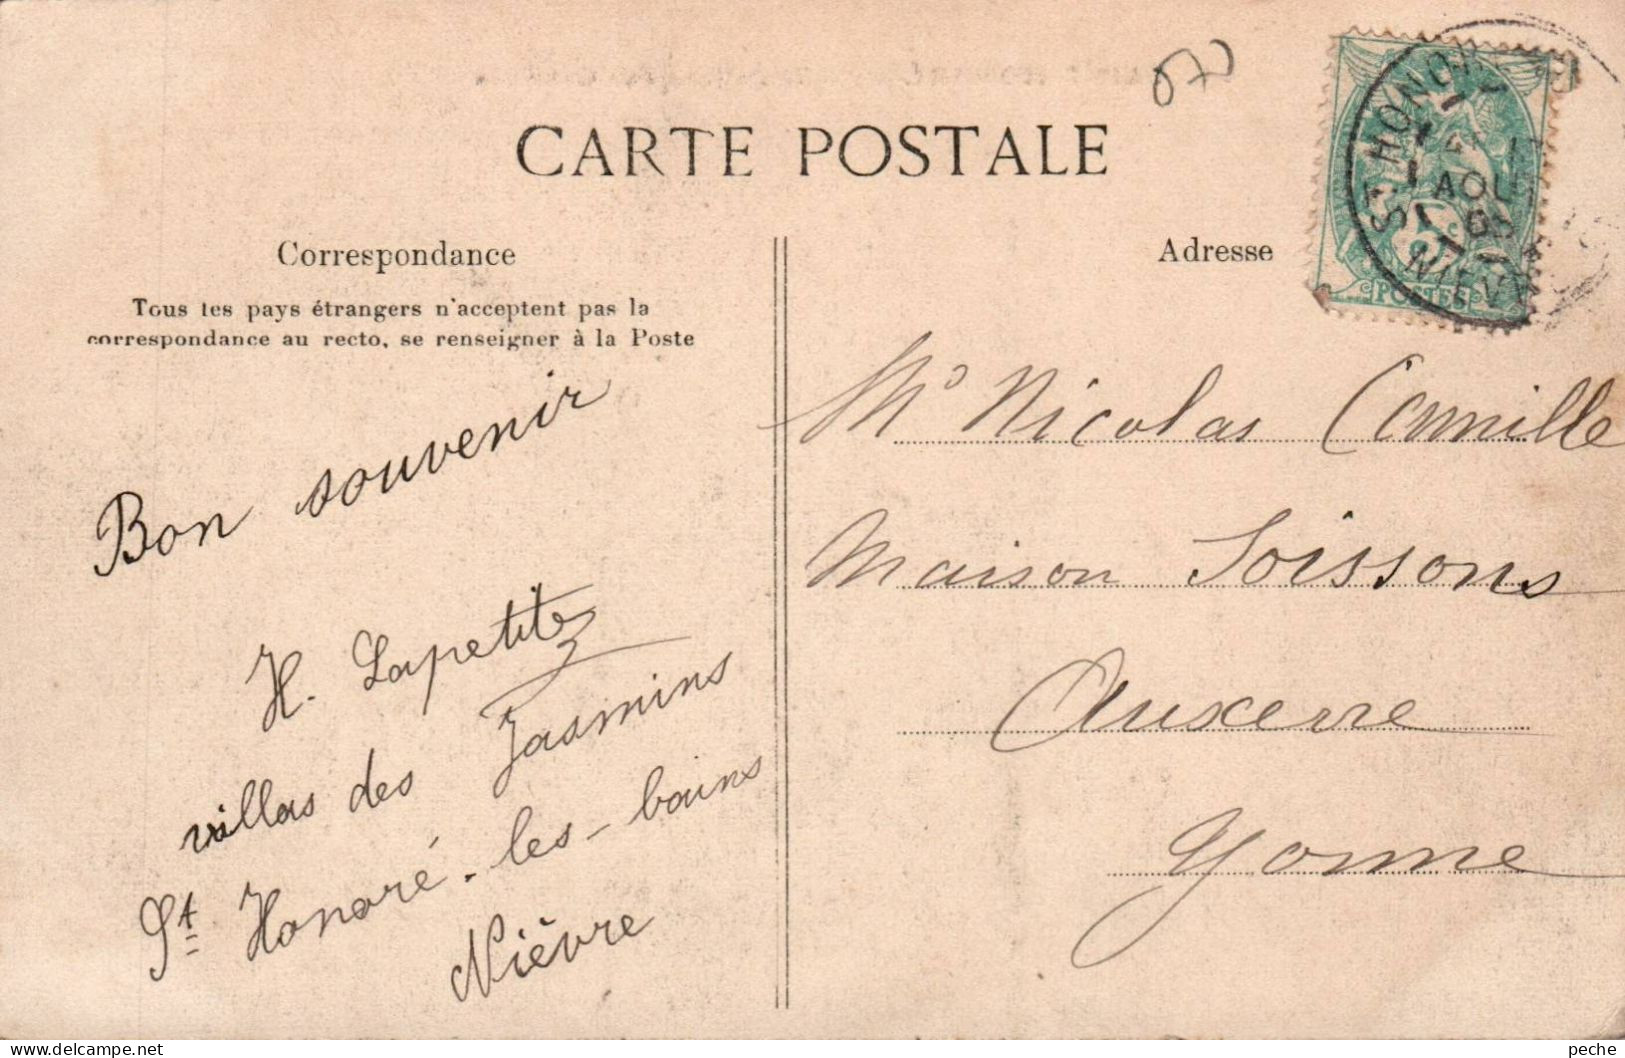 CARTE POSTALE
Correspondance
Tous les pays étrangers n'acceptent pas la
correspondance au recto, se renseigner à la Poste
Bon souvenir
H. Lapetite
villas des Jasmins
St Honoré-les-bains
Nièvre
Adresse
ST HONORÉ
AOUT
05
NIÈVRE
5c
POSTES
Mr Nicolas Camille
Maison Soissons
Auxerre
Yonne
peche